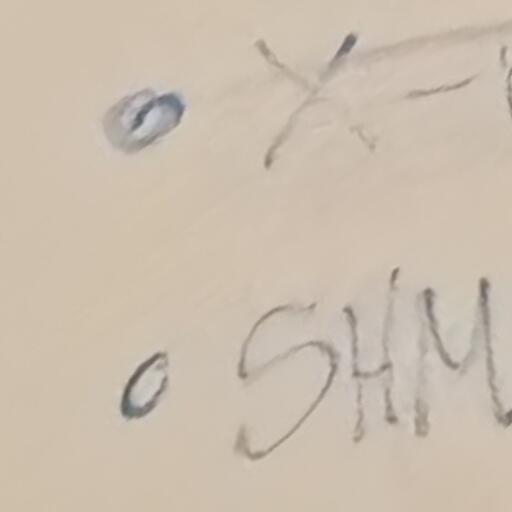 X-
SHM